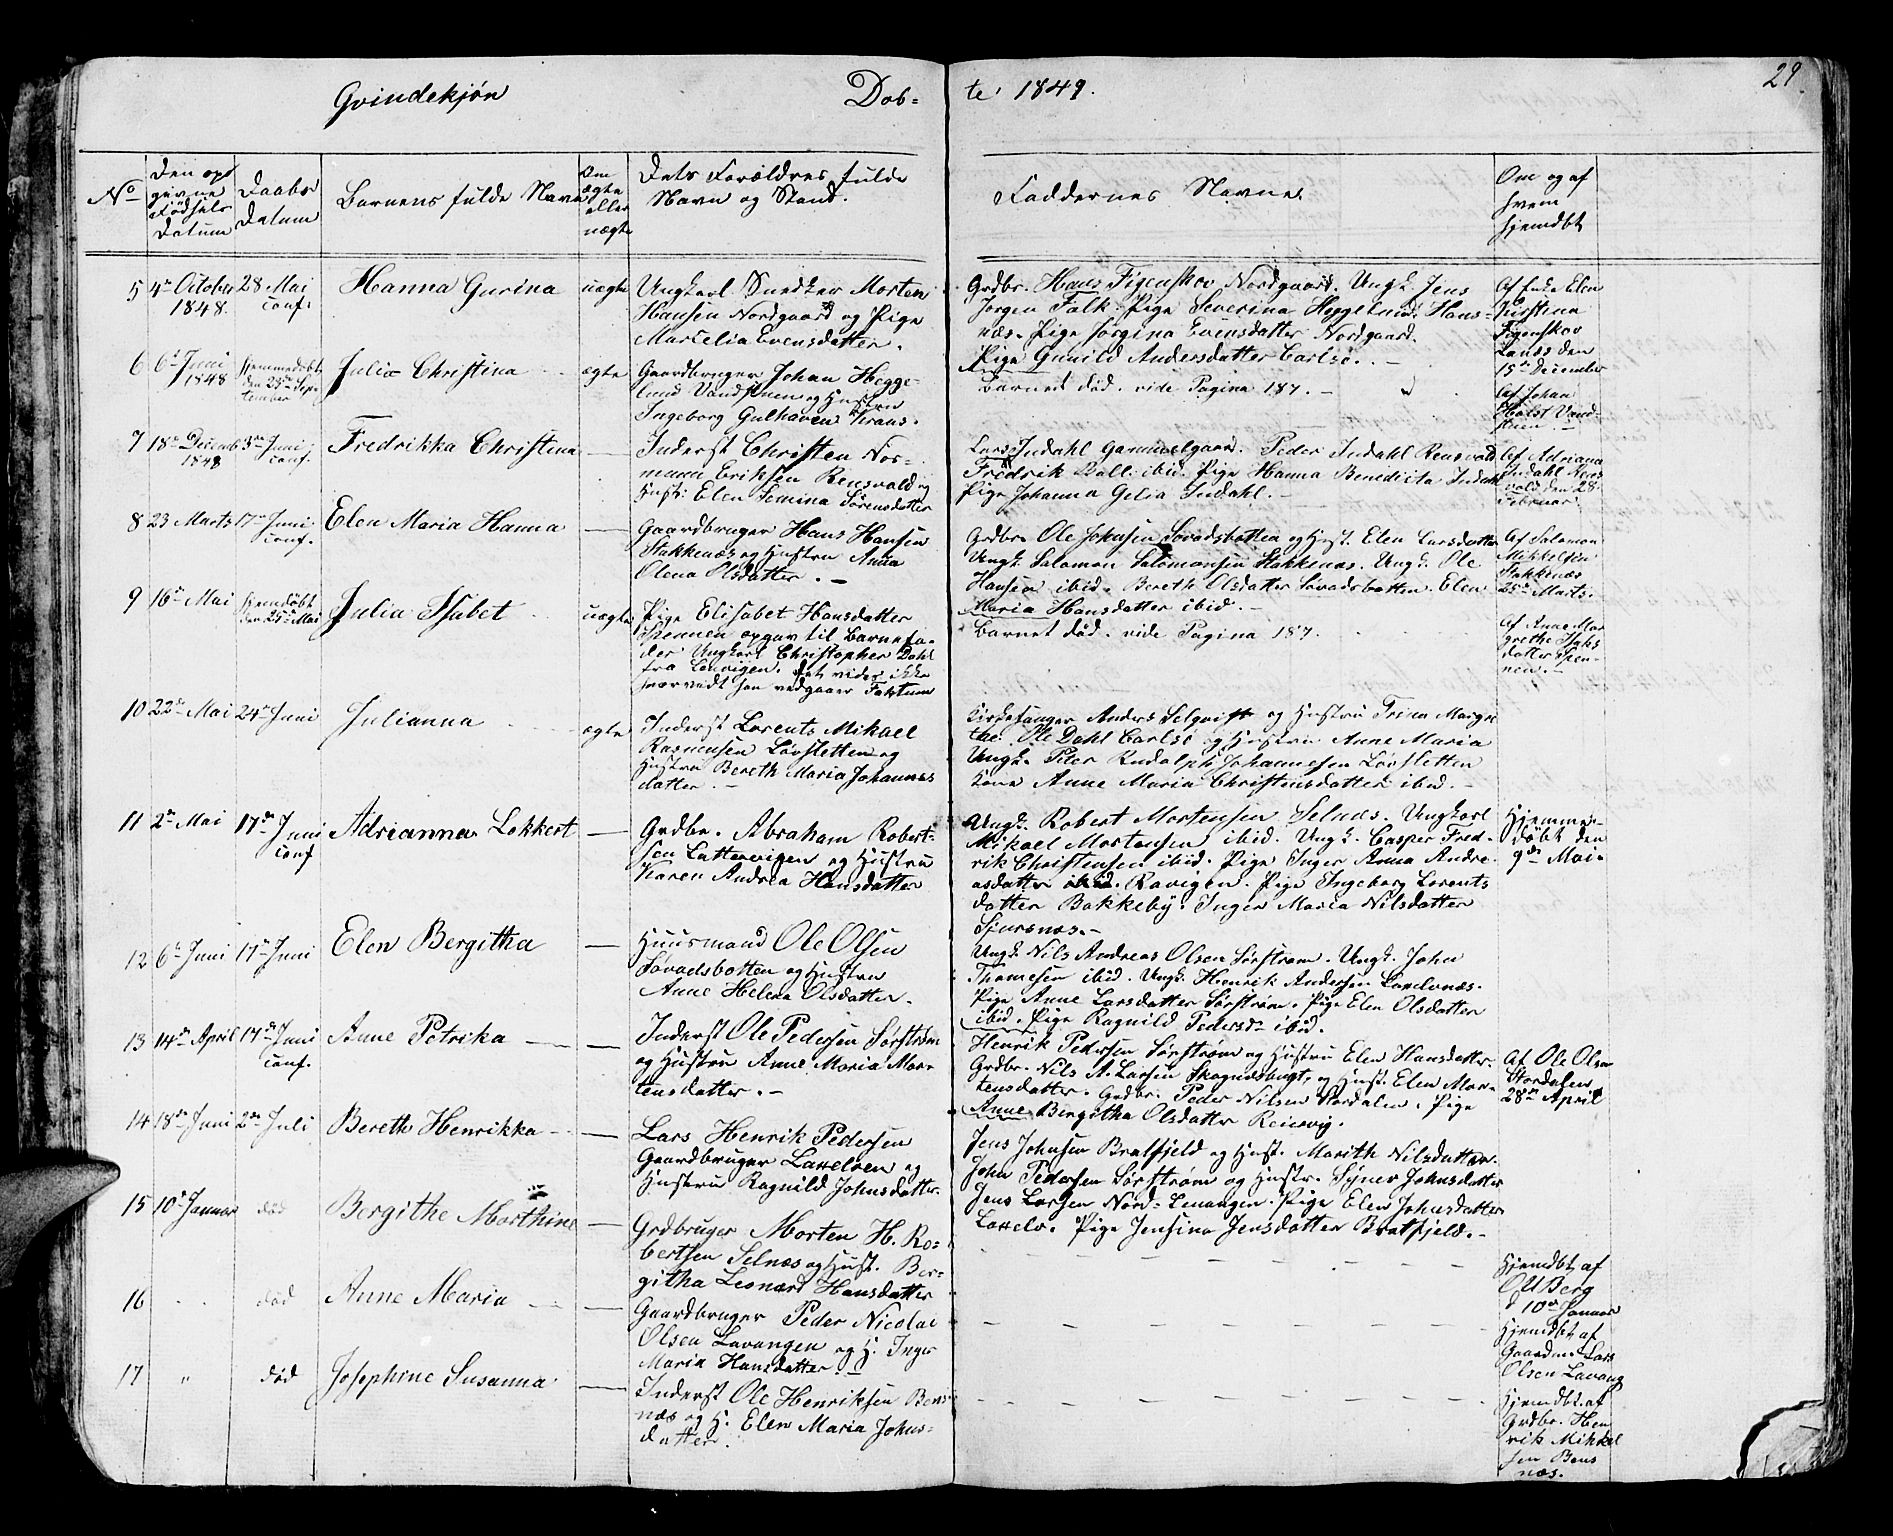 Qvindekjøn
Døb=
te 1849.
29.
No
Den op=
givne
Fødsels
Datum
Daabs
Datum
Barnets fulde Navn
Om
ægte
eller
uægte
Dets Forældres fulde
Navn og Stand.
Faddernes Navne.
Om og af
hvem
hjemdbt
5
4de October
1848.
28 Mai
conf.
Hanna Gurina
uægte
Ungkarl Snedker Morten
Hansen Nordgaard og Pige
Marcelia Evensdatter.
Grdbr. Hans Figenskov Nordgaard. Ungk. Jens
Jørgen Falk. Pige Severina Heggelund Hans=
næs. Pige Jørgina Evensdatter Nordgaard.
Pige Gunild Andersdatter Carlsø.
Af Enke Elen
Kirstina
Figenskov
den
15de December
6
6te Juni
1848
Hjemmedøbt
den 25de Sep=
tember
Julia Christina
ægte
Gaardbruger Johan Hegge=
lund og Hustru
Ingeborg Gulhaven Kraus.
Barnet død. vide Pagina 187.
Af Johan
Holst
7
18de Decemb
1848
3die Juni
conf.
Fredrikka Christina
Inderst Christen Nor=
mann Eriksen Rensvold og
Hust: Elen Semina Sørensdatter
Lars Indahl Gammelgaard. Peder Indahl Rensvold
Fredrik Dall. ibid. Pige Hanna Benedicta Indahl
Pige Johanna Gelia Indahl.
Af Adriana
Indahl Rens=
vold den 28.
Februar.
8
23 Marts
17de Juni
conf.
Elen Maria Hanna
Gaardbruger Hans Hansen
Stakkenæs og Hustru Anna
Olena Olsdatter.
Grdbr. Ole Johnsen Sovadsbotten og Hust. Elen Larsdatter
Ungk. Salamon Salomonsen Stakkenæs. Ungk. Ole
Hansen ibid. Bereth Olsdatter Sovadsbotten. Elen
Maria Hansdatter ibid.
Af Salomon
Mikkelsen
Stakkenæs
25de Marts.
9
16de Mai
Hjemdøbt
den 25de Mai
Julia Isabet
uægte
Pige Elisabet Hansdatter
Spennen opgav til Barnefa=
der Ungkarl Christopher Dahl
fra
hvorvidt han vedgaaer Faktum
Barnet død. vide Pagina 187.
Af Anne Mar
grethe
datter Spen=
nen.
10
22de Mai
24de Juni
Julianna
ægte
Inderst Lorents Mikael
Rasmusen Løvsletten og
Hustru Bereth Maria Johannes
datter.
Kirkesanger Anders Selqvist og Hustru Trina Margre
the. Ole Dahl Carlsø og Hustru Anne Maria
Ungk. Peter Rudolph Johannesen Løvsletten
Kone Anne Maria Christensdatter ibid.
11
2de Mai
17de Juni
conf
Adrianna Lokkert
Grdbr. Abraham Robert=
sen Lattervigen og Hustru
Karen Andrea Hansdatter
Ungk. Robert Mortensen Selnæs. Ungkarl
Mikael Mortensen ibid. Ungk. Casper Fred=
rik Christensen ibid. Pige Inger Anna Andre=
asdatter Ravigen. Pige Ingeborg Lorents
datter Bakkeby. Inger Maria Nilsdatter
Sjursnæs.
Hjemme=
døbt den
9de Mai.
12
6te Juni
17de Juni
Elen Bergitha
Huusmand Ole Olsen
Sovadsbotten og Hustru
Anne Helena Olsdatter.
Ungk. Nils Andreas Olsen Sørstrøm. Ungk. John
Thomesen ibid. Ungk. Henrik Andersen
Pige Anne Larsdatter Sørstrøm. Pige Elen Olsdatter
ibid. Pige Ragnild Pedersdr ibid.
13
14de April
17de Juni
conf.
Anne Petrika
Inderst Ole Pedersen Sørstrøm
og Hustru Anne Maria Mor=
tensdatter.
Henrik Pedersen Sørstrøm og Hustru Elen Hansdatter
Grdbr. Nils A. Larsen Skognesbugt, og Hust. Elen Mor=
tensdatter. Grdbr. Peder Nilsen Stordalen. Pige
Anne Bergitha Olsdatter Reinsvig.
Af Ole Olsen
Stordalen
28de April
14
18de Juni
2de Juli
Bereth Henrikka
Lars Henrik Pedersen
Gaardbruger Laxelven og
Hustru Ragnild Johnsdatter.
Jens Johnsen Bratfjeld og Hust. Marith Nilsdatter.
John Pedersen Sørstrøm og Hustr. Synev Johnsdatter
Jens Larsen Nord=Lenangen. Pige Elen Johnsdatter
Laxelv. Pige Jensina Jensdatter Bratfjeld.
15
10de Januar
død
Bergithe Morthine
Grdbruger Morten H. Ro=
bertsen Selnæs og Hust. Ber=
githa Leonard Hansdatter
Hjemdbt af
O U Berg
d 10de Januar
16
død
Anne Maria
Gaardbruger Peder Nicolai
Olsen Lavangen og H. Inger
Maria Hansdatter.
Hjemdbt af
Gaardm. Lars
Olsen Lavang
17
"
død
Josephine Susanna
Inderst Ole Henriksen Bens
næs og H. Elen Maria Johns=
datter.
Hjemdbt. af
Grdbr. Hen
rik Mikkel
sen Bens
næs.